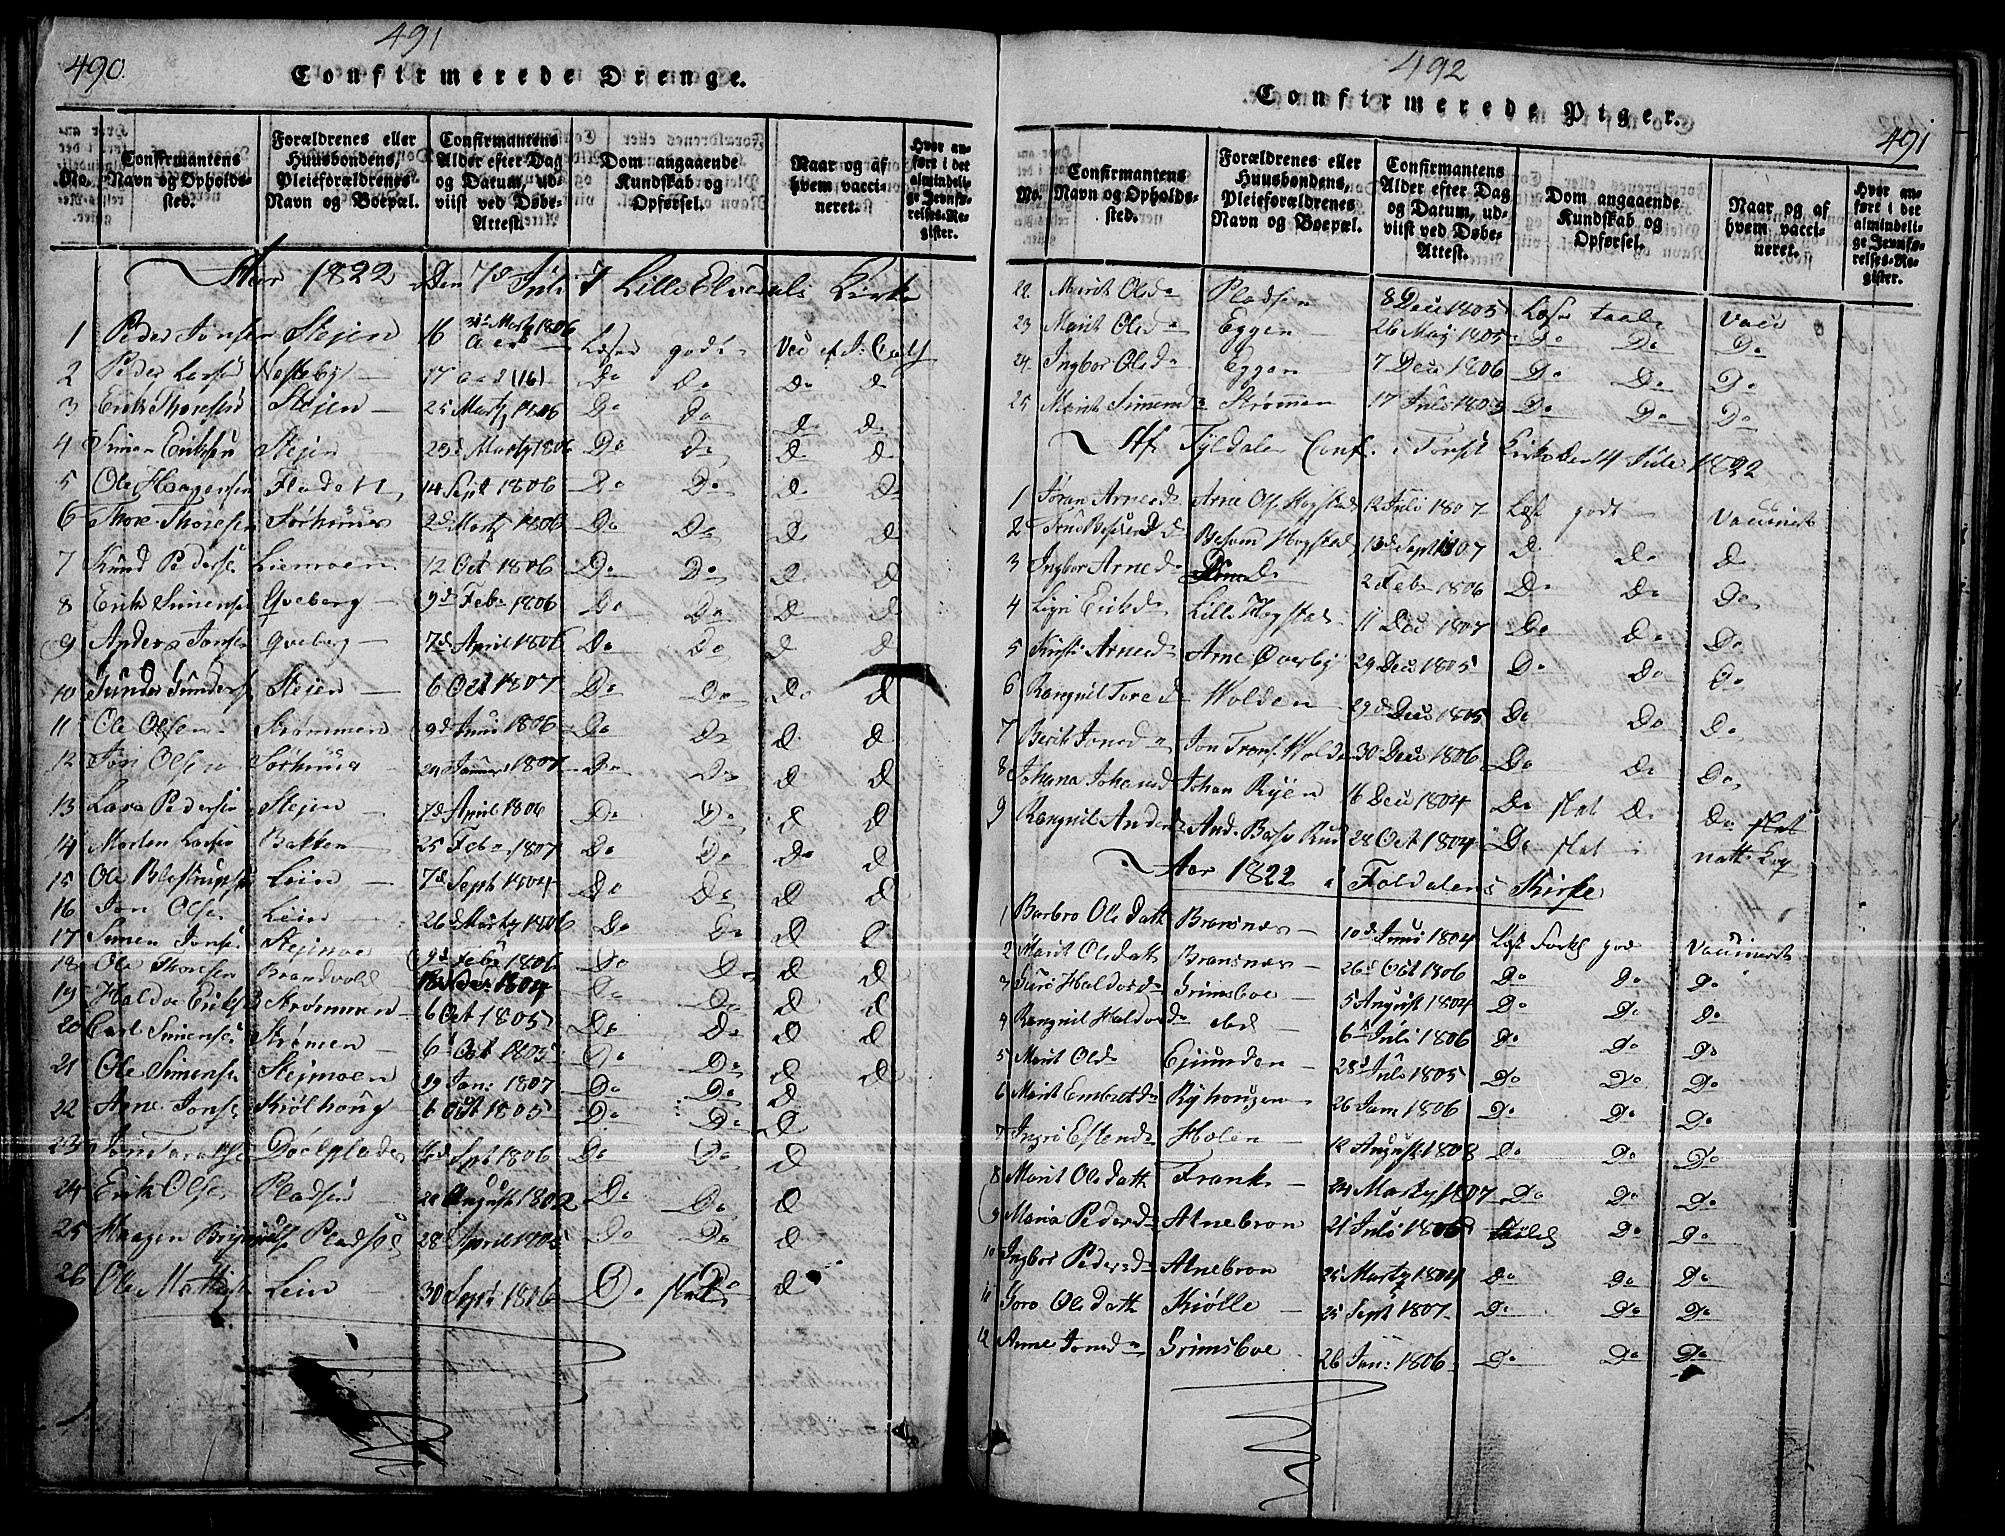 490
491
Confirmerede Drenge.
No.
Confirmantens Navn og Opholdssted.
Forældrenes eller Huusbondens, Pleieforældrenes Navn og Boepæl.
Confirmantens Alder efter Dag og Datum, udviist ved Døbe-Attest.
Dom angaaende Kundskab og Opførsel.
Naar og af hvem vaccineret.
Hvor anført i det almindelige Jevnførelses-Register.
Aar 1822 Den 7d Juli I Lille Elvedals Kirke
1 Peder Jonsen Stejen 16 31d Martz 1806 Læser godt
2 Peder Larsen Næsteby 17 (16) Do Do Do D
3 Erik Thoresen Stejen 25 Martz 1806 Do Do D D
4 Simen Eriksen Stejen 23d Martz 1806 Do Do D D
5 Ole Haagensen 14 Sept 1806 Do Do D D
6 Thore Thoresen Sørhuus 2d Martz 1806 Do Do D D
7 Knud Pederse Liemoen 12 Oct 1806 Do Do D D
8 Erik Simense Qveberg 9d Feb 1806 Do Do D D
9 Anders Jonsen Qveberg 7d April 1806 Do Do D D
10 Gunder Gunders Steien 6 Oct 1807 Do Do Do D
11 Ole Olsen Strømmen 9d Juni 1806 Do Do D D
12 Jon Olsen Sørhuus 24 Januar 1807 Do Do D D
13 Lars Pedersen Stejen 7d April 1806 Do Do D D
14 Morten Larsen Bakken 25 Feb 1807 Do Do Do D
15 Ole Leien 7d Sept 1804 Do Do D D
16 Jon Olsen Leien 26d Martz 1806 Do Do D D
17 Simen Jonse Stejmoe 9d Feb 1806 Do Do D D
18 Ole Thoresen Brandvold 1804 Do Do D D
19 Haldo Eriksen Strømmen 6 Oct 1805 Do Do D D
20 Carl Simense Strømen 6 Oct 1805 Do Do D D
21 Ole Simense Stejmoen 29 Jan: 1807 Do Do D
22 Arne Jonse Kiølhoug 6 Oct 1805 Do Do D
23 Jon Dølplads Sept 1806 Do Do D
24 Erik Olsen Pladsen 20 August 1802 Do Do D
25 Haagen Pladsen 28 April 1805 Do Do D
26 Ole Leien 30 Sept 1806 Do slet D
492
491
Confirmerede Piger.
No.
Confirmantens Navn og Opholdssted.
Forældrenes eller Huusbondens, Pleieforældrenes Navn og Boepæl.
Confirmantens Alder efter Dag og Datum, udviist ved Døbe-Attest.
Dom angaaende Kundskab og Opførsel.
Naar og af hvem vaccineret.
Hvor anført i det almindelige Jevnførelses-Register.
22. Marit Olsda Pladsen 8 Dec 1805 Læser taal. Vacci
23 Marit Olsda Eggen 26 May 1805 Do Do Do
24. Ingbor Olsda Eggen 7 Dec 1806 Do Do Do
25 Marit Simensda Strømmen 17 Juli 1803 Do Do Do
Af Tyldalen Conf. i Tønset Kirke den 14 Julii 1822
1 Jøran Arnesda Arne Ols Hogstad 12 Juli 1807 Læst godt Vaccineret
2 Hogstad 13d Sept 1807 D Do D
3 Ingbor Arnesda Do 2 Feb 1806 Do Do Do
4 Sigri Eriksda Lille Hogstad 11 Dec 1807 Do Do Do
5 Kirsti Arnesd Arne Øverby 29 Dec 1805 Do Do Do
6 Rangnil Toresd Wolden 29d Dec 1805 Do Do Do
7 Berit Jonsda Jon Wolde 30 Dec 1806 Do Do Do
8 Johana Johansd Johan Ryen 16 Dec 1804 Do slet D Do slet
9 Rangnil Anders Ands Rud 28 Oct 1804 Do slet
Aar 1822 i Foldalens Kirke
1 Barbro Olsdath Bransnes 10d Juni 1804 Læst godt Vaccineret
2 Marit Olsdath Bransnes 26d Oct 1806 Do Do Do
3 Guro Haldorsda Grimsboe 5 August 1804 Do Do Do
4 Rangnil Haldorsda 6d Juli 1806 Do Do Do
5 Marit Olsda 28d Juli 1805 Do Do Do
6 Marit Embretsda Ryhougen 26 Janr 1806 Do Do Do
7 Ingrø Estensda Holen 12 August 1808 Do Do Do
8 Marit Olsdath Frank 24 Martz 1807 Do Do Do
9 Maria Pedersda Alnebron 21 Juli 1806 Do Do
10 Ingbor Pedersda Alnebron 25 Martz 1804 Do Do Do
11 Goro Olsdath Kiølle 25 Sept 1807 Do Do Do
12 Anne Jonsda Grimsboe 26 Jan: 1806 Do Do Do